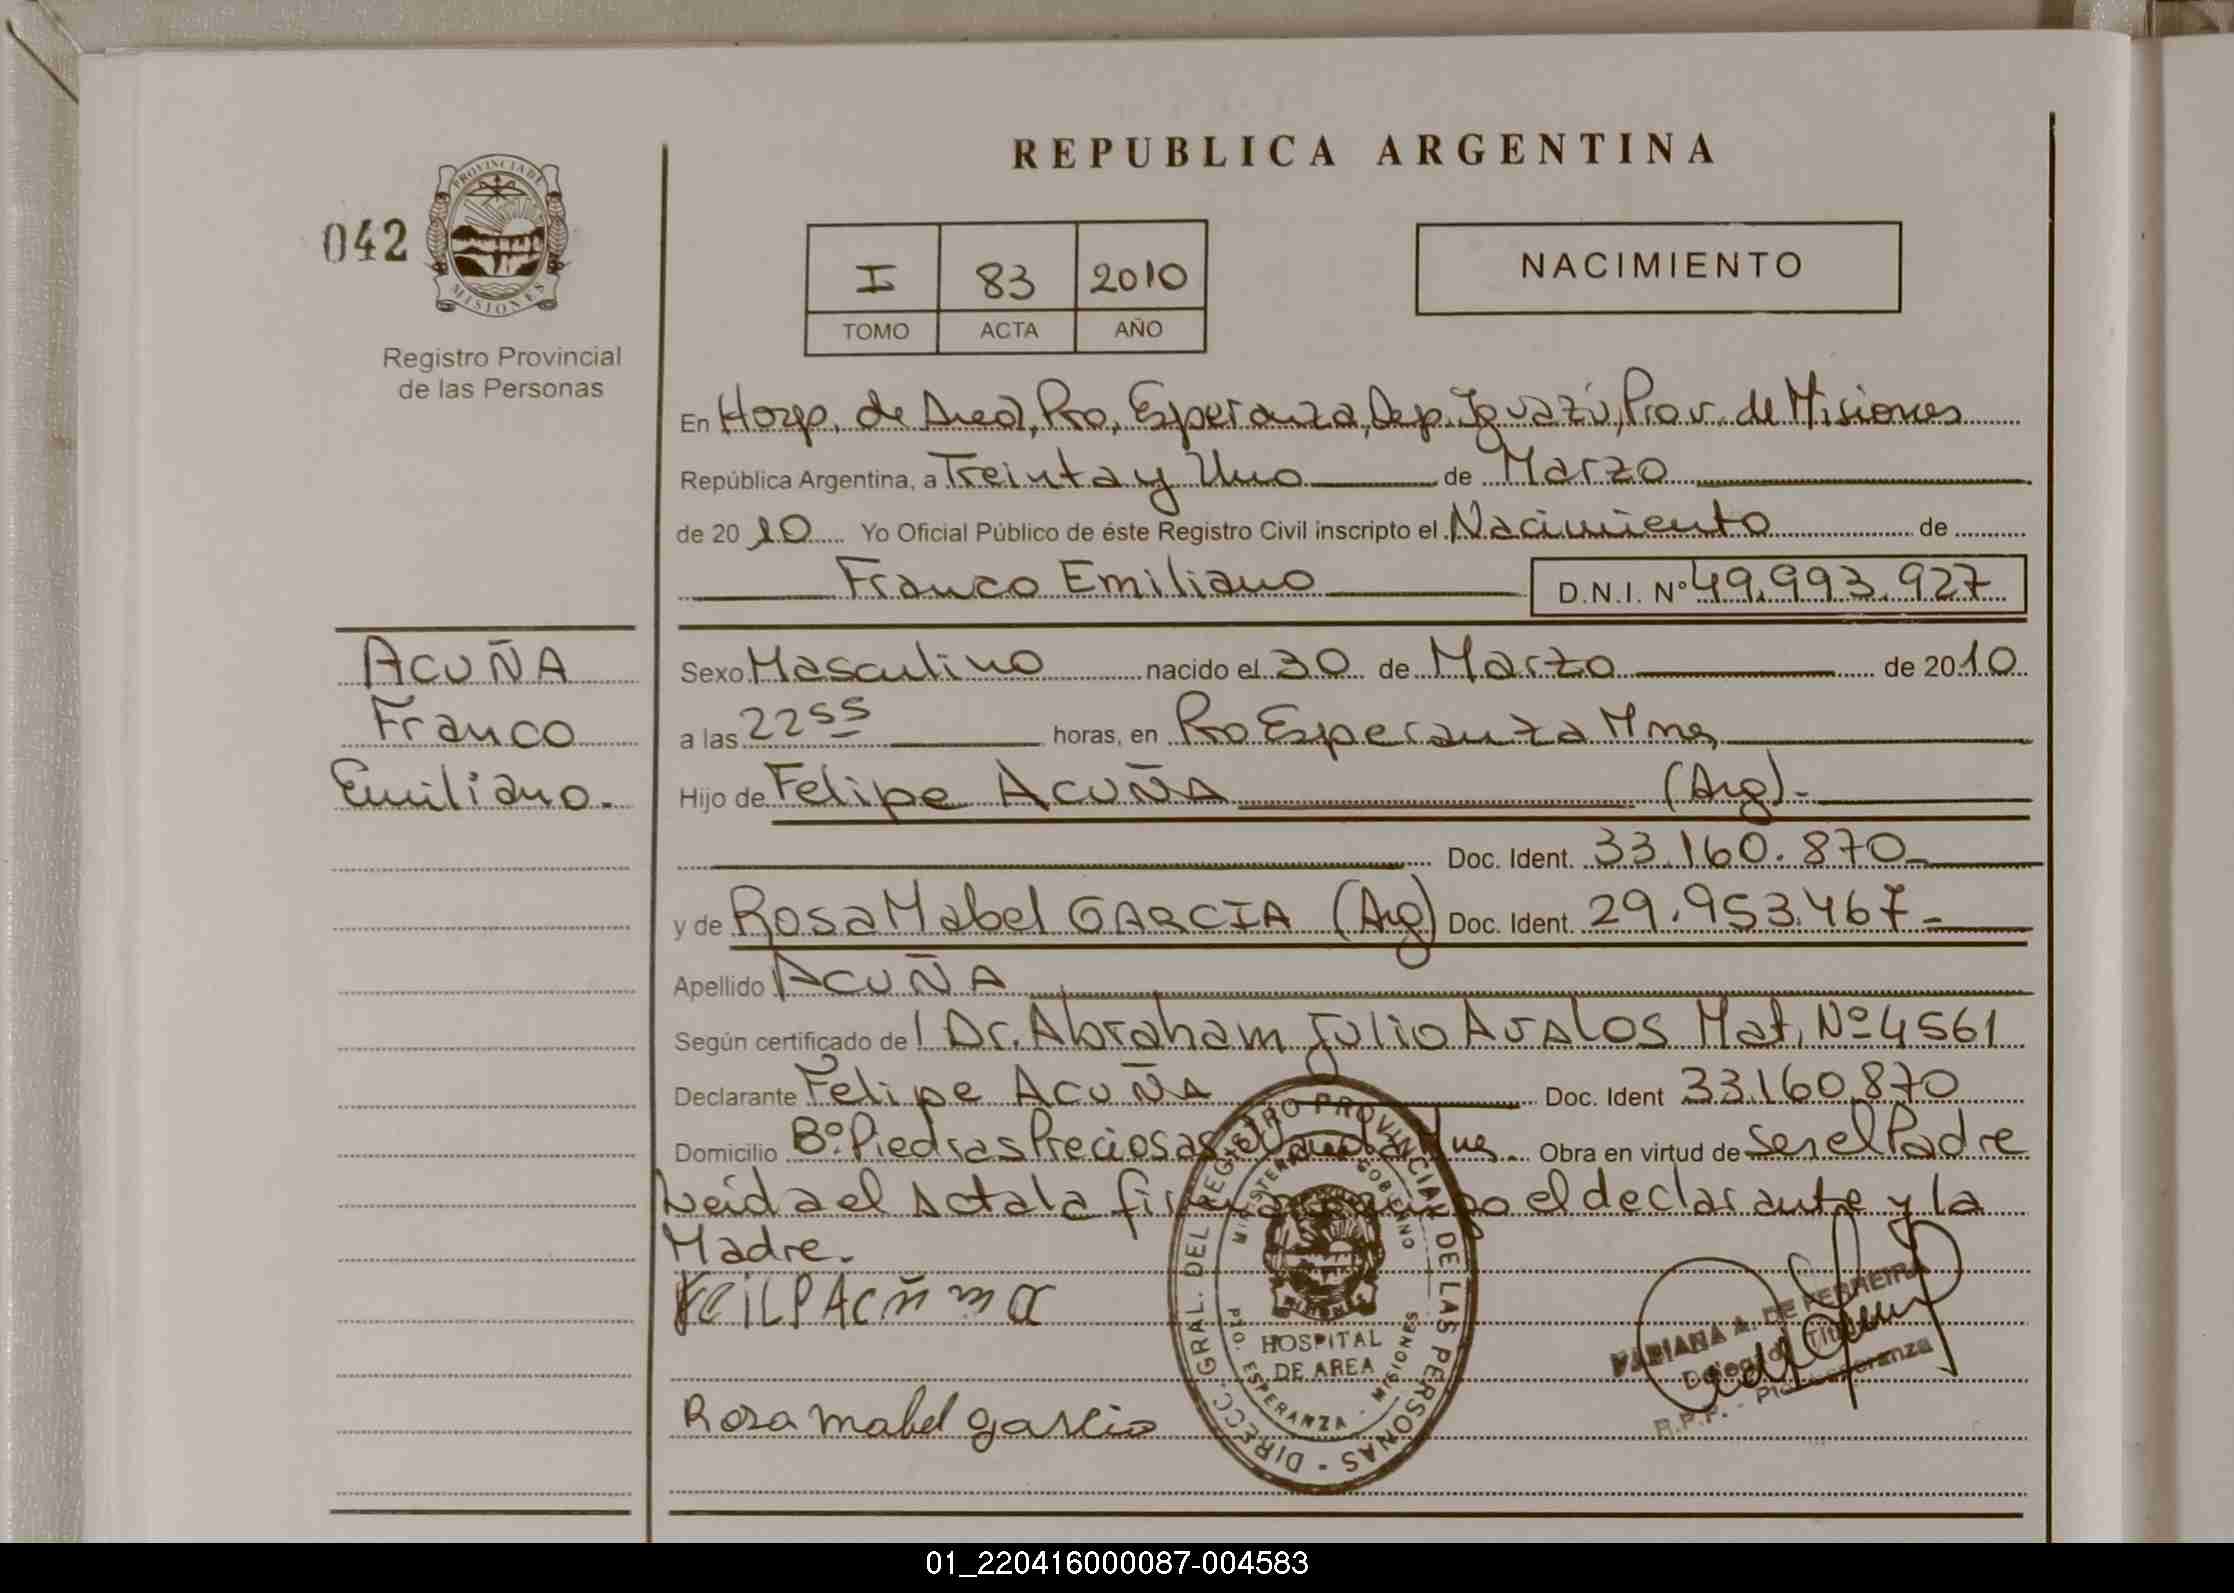 REPUBLICA ARGENTINA
042
PROVINCIA DE
MISIONES
Registro Provincial
de las Personas
I 83 2010
TOMO ACTA AÑO
NACIMIENTO
En Hosp. de Area, Pto, Esperanza, Dep. Iguazú, Prov. de Misiones
República Argentina, a Treinta y Uno de Marzo
de 2010 Yo Oficial Público de éste Registro Civil inscripto el Nacimiento de
Franco Emiliano D.N.I. Nº 49.993.927
ACUÑA
Franco
Emiliano.
Sexo Masculino nacido el 30 de Marzo de 2010
a las 22 55 horas, en Pto Esperanza Mnes
Hijo de Felipe ACUÑA (Arg).-
Doc. Ident. 33.160.870-
y de Rosa Mabel GARCIA (Arg) Doc. Ident. 29.953.467-
Apellido ACUÑA
Según certificado de l Dr. Abraham Julio AVALOS Mat. Nº 4561
Declarante Felipe ACUÑA Doc. Ident 33.160.870
Domicilio Bº Piedras Preciosas Mnes Obra en virtud de Ser el Padre
Leida el Acta la el declarante y la
Madre.
Rosa mabel garcia
DIRECC. GRAL. DEL REGISTRO PROVINCIAL DE LAS PERSONAS -
MINISTERIO GOBIERNO
HOSPITAL
DE AREA
PTO. ESPERANZA - MISIONES
FABIANA A. DE FERREIRA
R.P.P. - Pto. Esperanza
01_220416000087-004583